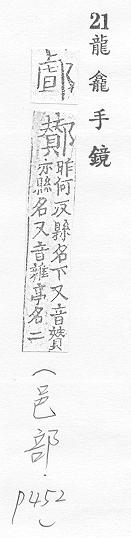 21 龍龕手鏡
䣜
鄼 昨何反縣名下又音讚
亦縣名又音雜亭名二
(邑部.
p452)